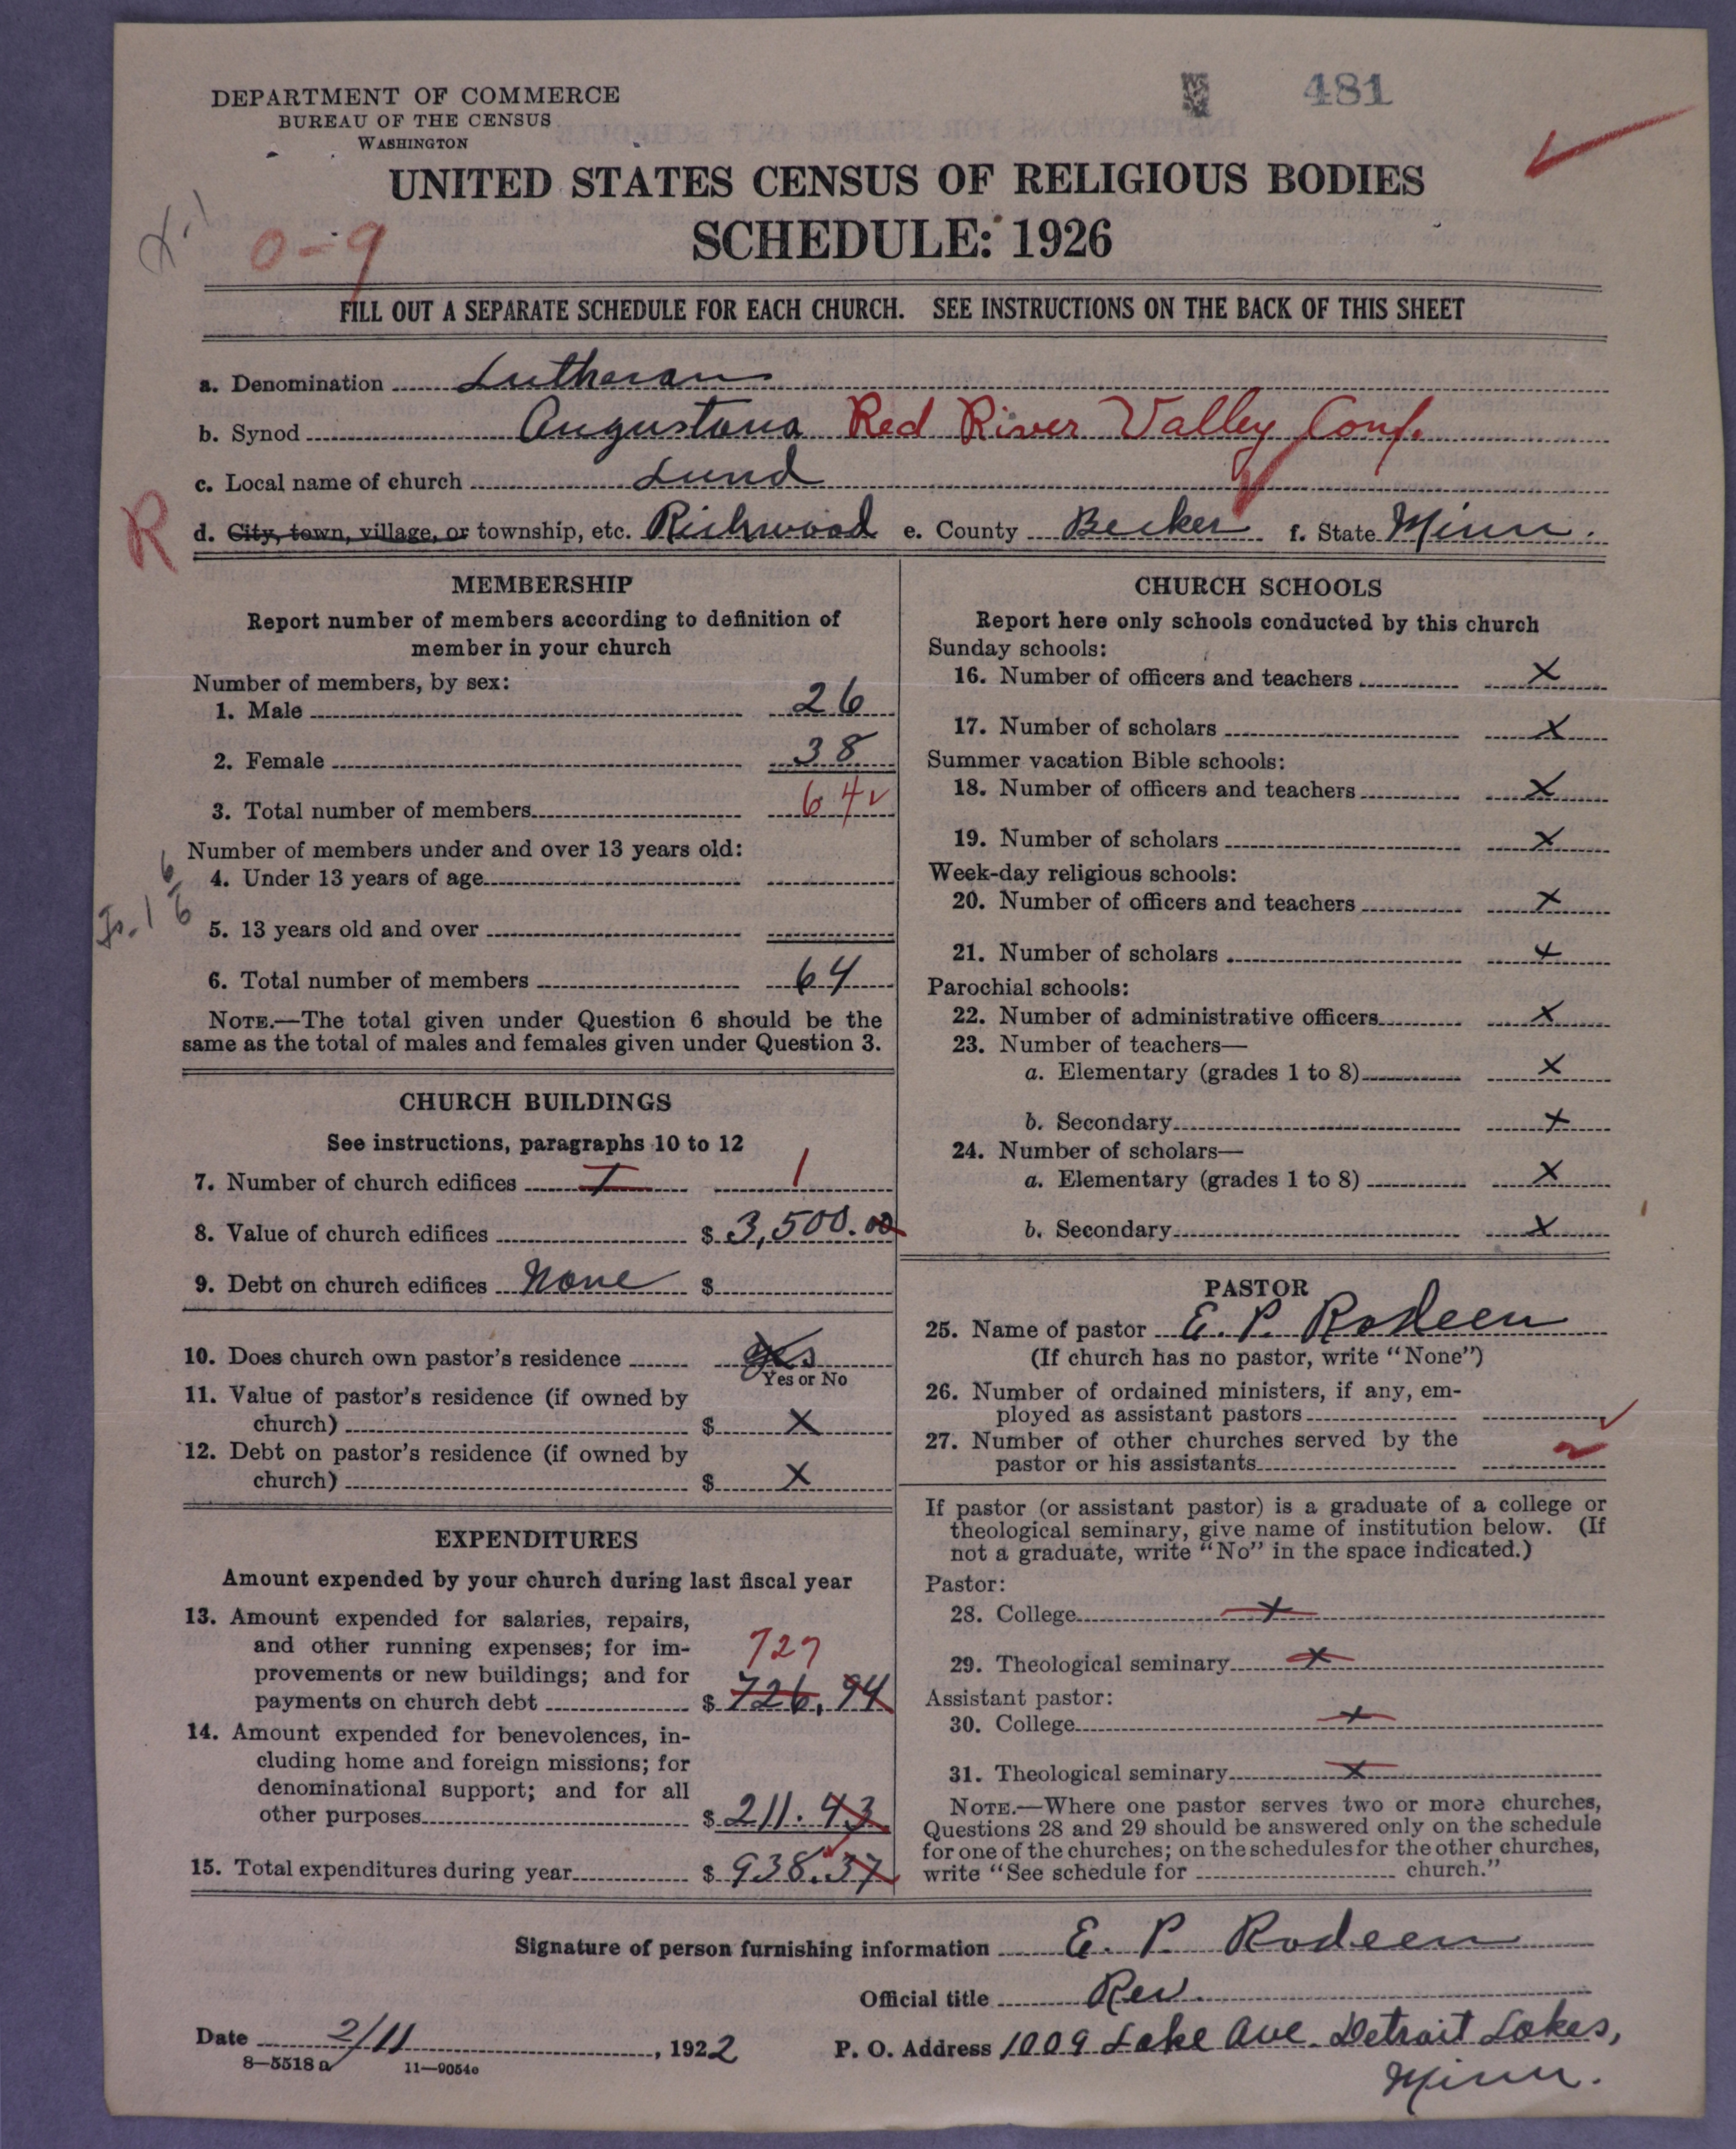 481
DEPARTMENT OF COMMERCE
BUREAU OF THE CENSUS
WASHINGTON
UNITED STATES CENSUS OF RELIGIOUS BODIES
SCHEDULE: 1926
0-9
FILL OUT A SEPARATE SCHEDULE FOR EACH CHURCH. SEE INSTRUCTIONS ON THE BACK OF THIS SHEET
a. Denomination Lutheran
b. Synod Augustana Red River Valley Conf.
c. Local name of church Lund
R
d. City, town, village, or township, etc. Richwood e. County Becker f. State Minn.
MEMBERSHIP
Report number of members according to definition of
member in your church
Number of members, by sex:
1. Male 26
2. Female 38
3. Total number of members 64
Number of members under and over 13 years old:
4. Under 13 years of age
5. 13 years old and over
6. Total number of members 64
NOTE.—The total given under Question 6 should be the
same as the total of males and females given under Question 3.
CHURCH BUILDINGS
See instructions, paragraphs 10 to 12
7. Number of church edifices I 1
8. Value of church edifices $ 3,500.00
9. Debt on church edifices None $
10. Does church own pastor's residence Yes
Yes or No
11. Value of pastor's residence (if owned by
church) $ X
12. Debt on pastor's residence (if owned by
church) $ X
EXPENDITURES
Amount expended by your church during last fiscal year
13. Amount expended for salaries, repairs,
and other running expenses; for im- 727
provements or new buildings; and for
payments on church debt $ 726.94
14. Amount expended for benevolences, in-
cluding home and foreign missions; for
denominational support; and for all
other purposes $ 211.43
15. Total expenditures during year $ 938.37
CHURCH SCHOOLS
Report here only schools conducted by this church
Sunday schools:
16. Number of officers and teachers X
17. Number of scholars X
Summer vacation Bible schools:
18. Number of officers and teachers X
19. Number of scholars X
Week-day religious schools:
20. Number of officers and teachers X
21. Number of scholars X
Parochial schools:
22. Number of administrative officers X
23. Number of teachers—
a. Elementary (grades 1 to 8) X
b. Secondary X
24. Number of scholars—
a. Elementary (grades 1 to 8) X
b. Secondary X
PASTOR
25. Name of pastor E. P. Rodeen
(If church has no pastor, write "None")
26. Number of ordained ministers, if any, em-
ployed as assistant pastors
27. Number of other churches served by the
pastor or his assistants
If pastor (or assistant pastor) is a graduate of a college or
theological seminary, give name of institution below. (If
not a graduate, write "No" in the space indicated.)
Pastor:
28. College X
29. Theological seminary X
Assistant pastor:
30. College X
31. Theological seminary X
NOTE.—Where one pastor serves two or more churches,
Questions 28 and 29 should be answered only on the schedule
for one of the churches; on the schedules for the other churches,
write "See schedule for church."
Signature of person furnishing information E. P. Rodeen
Official title Rev.
Date 2/11, 1922 P. O. Address 1009 Lake Ave. Detroit Lakes,
Minn.
8-5518 a 11-9054c